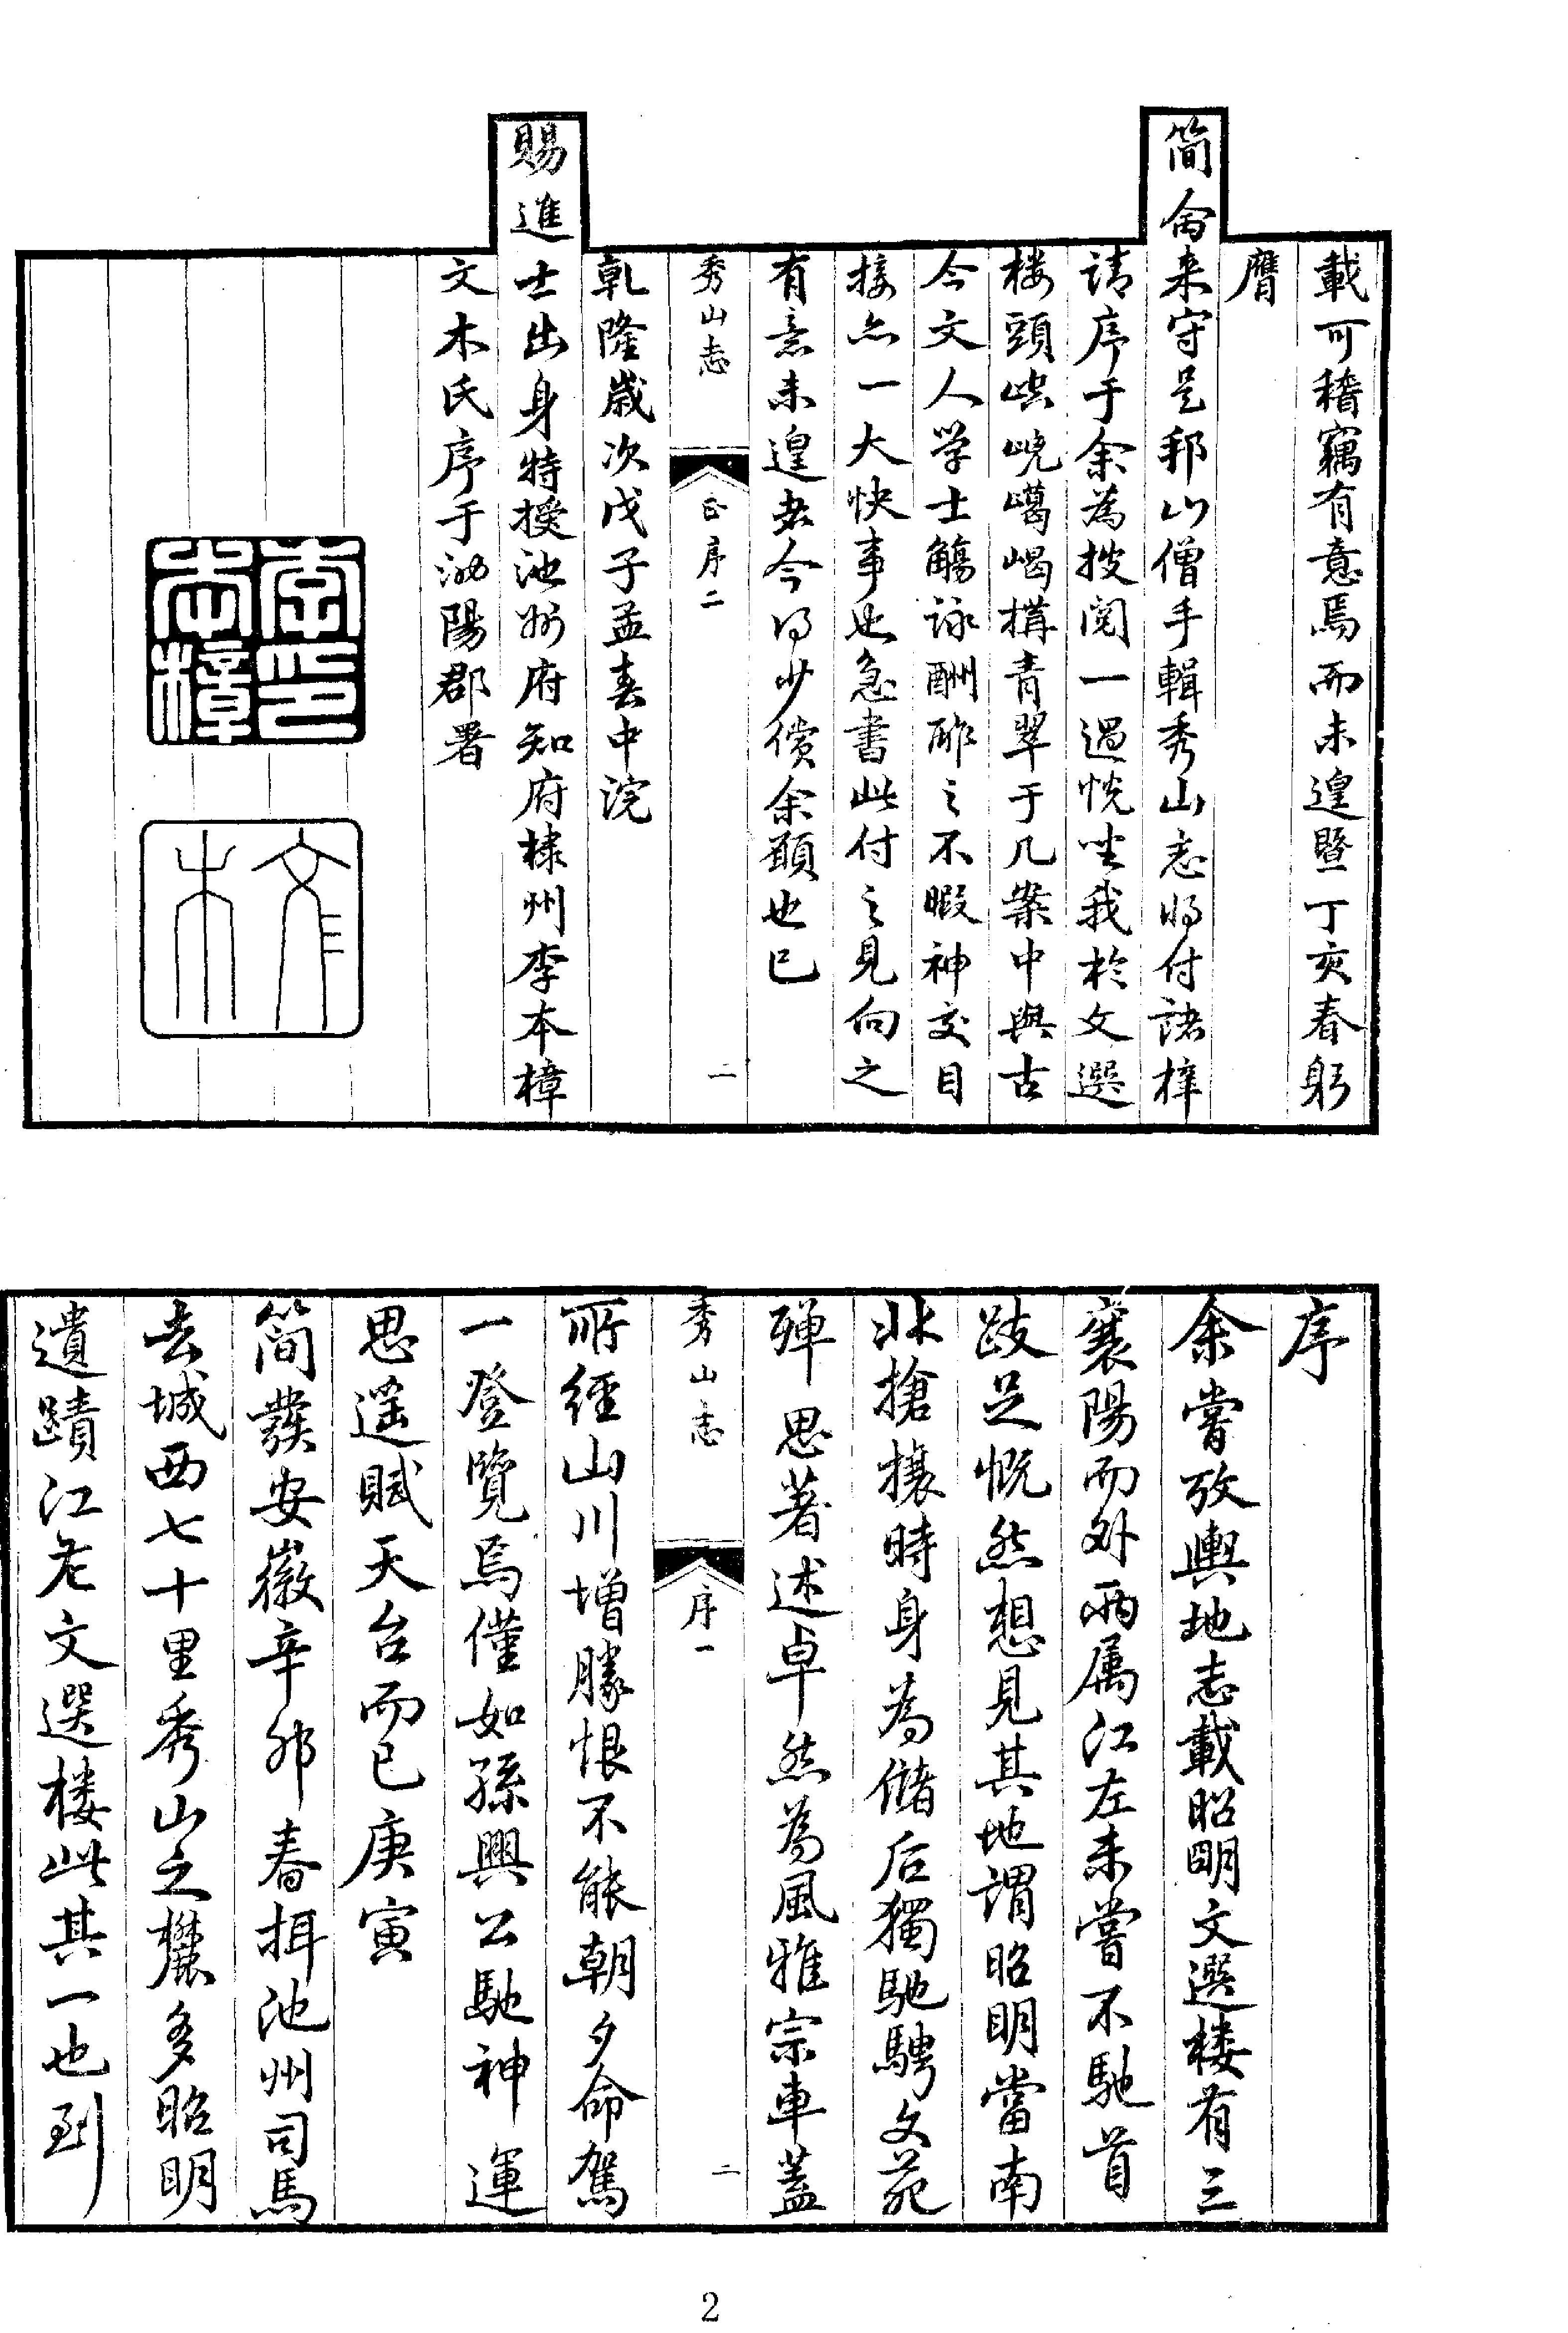 載可稽竊有意焉而未遑暨丁亥春躬
膺
简命来守是邦山僧手輯秀山志将付諸梓
请序于余為披阅一過恍坐我於文選
楼頭峣嶱嵑搆青翠于几案中與古
今文人学士觴詠酬酢之不暇神交目
接亦一大快事也急書此付之見向之
有意未遑者今得少償余願也已
秀山志
序二
二
乾隆歲次戊子孟春中浣
賜進士出身特授池州府知府棣州李本樟
文木氏序于池陽郡署
李本樟印
文木
序
余嘗攷輿地志載昭明文選楼有三
襄陽而外兩属江左未嘗不馳首
跂足慨然想見其地謂昭明當南
北搶攘時身為儲后獨馳騁文苑
殫思著述卓然為風雅宗車蓋
秀山志
序一
二
所經山川增勝恨不能朝夕命駕
一登覽焉僅如孫興公馳神運
思遥賦天台而已庚寅
简發安徽辛卯春捐池州司馬
去城西七十里秀山之麓多昭明
遺蹟江左文選楼此其一也到
2